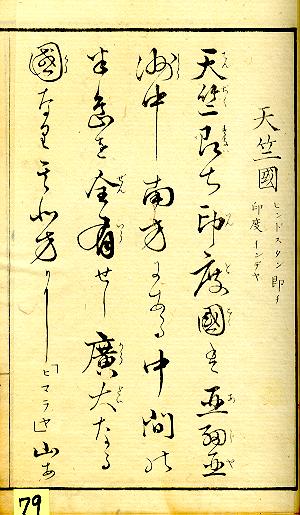 天竺國
ヒンドスタン 即チ
印度 インヂヤ
天竺即ち印度國は亞細亞
洲中南方にある中間の
半島を全有せし廣大なる
國なり其北方に「ヒマラヤ山あ
79